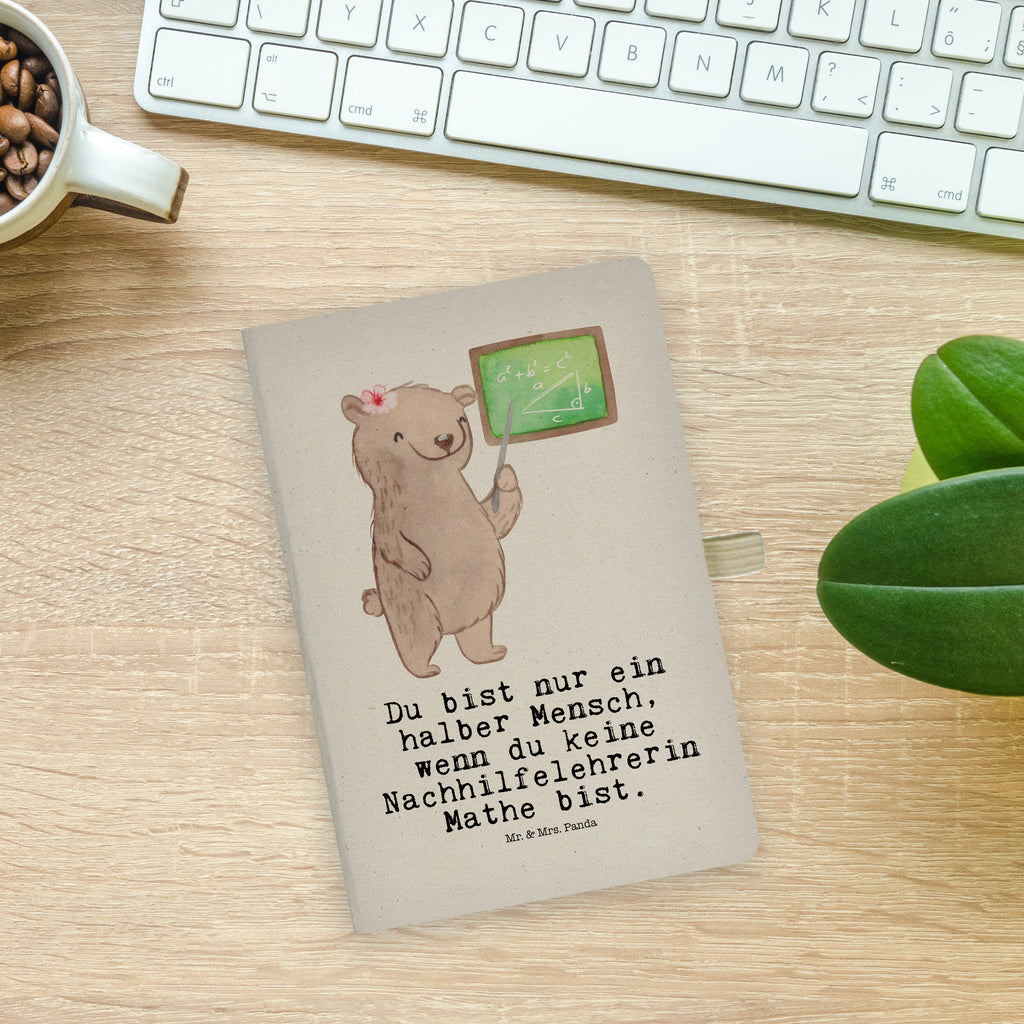 Y X C V B N M K L
ctrl alt cmd ⌘
? < : > _ -
⌘ cmd
a² + b² = c²
a b
c
Du bist nur ein
halber Mensch,
wenn du keine
Nachhilfelehrerin
Mathe bist.
Mr. & Mrs. Panda